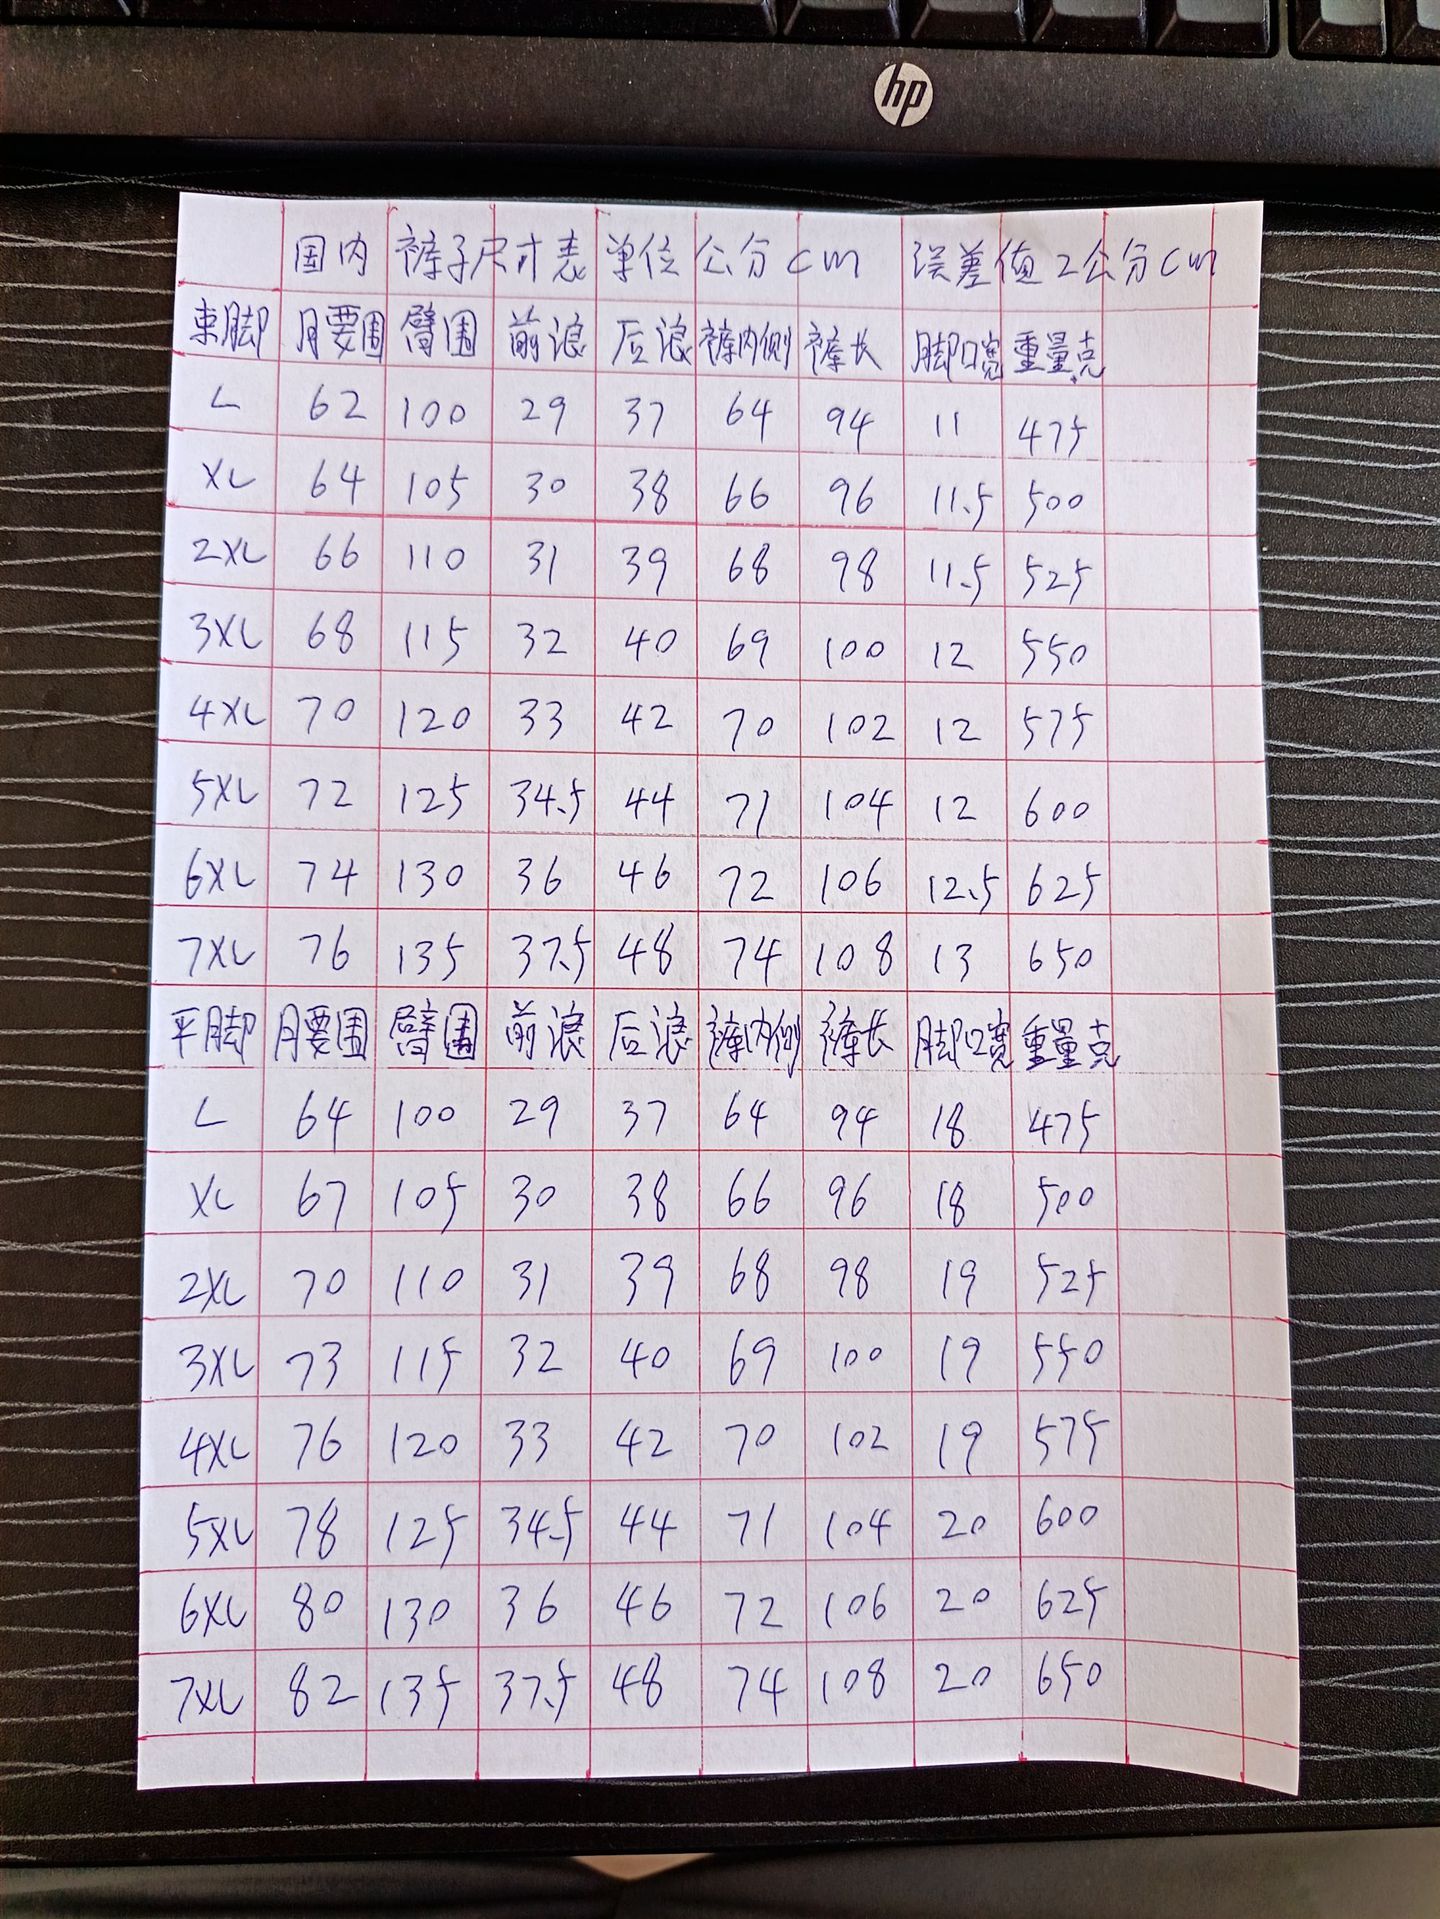 hp
国内 裤子尺寸表 单位 公分 cm 误差值 2公分cm
束脚 腰围 臂围 前浪 后浪 裤内侧 裤长 脚口宽 重量克
L 62 100 29 37 64 94 11 475
XL 64 105 30 38 66 96 11.5 500
2XL 66 110 31 39 68 98 11.5 525
3XL 68 115 32 40 69 100 12 550
4XL 70 120 33 42 70 102 12 575
5XL 72 125 34.5 44 71 104 12 600
6XL 74 130 36 46 72 106 12.5 625
7XL 76 135 37.5 48 74 108 13 650
平脚 腰围 臂围 前浪 后浪 裤内侧 裤长 脚口宽 重量克
L 64 100 29 37 64 94 18 475
XL 67 105 30 38 66 96 18 500
2XL 70 110 31 39 68 98 19 525
3XL 73 115 32 40 69 100 19 550
4XL 76 120 33 42 70 102 19 575
5XL 78 125 34.5 44 71 104 20 600
6XL 80 130 36 46 72 106 20 625
7XL 82 135 37.5 48 74 108 20 650